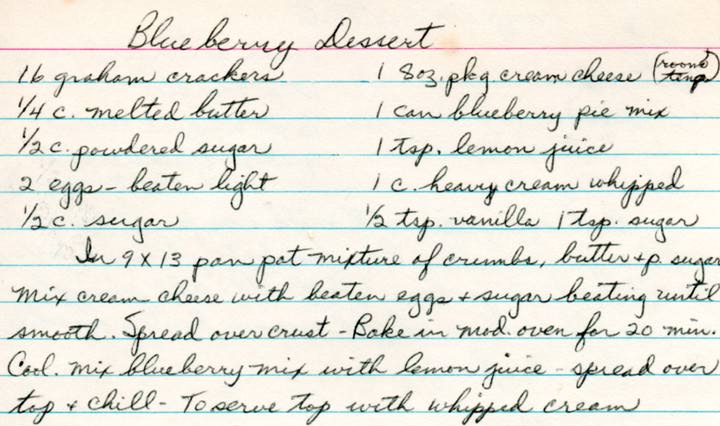 Blueberry Dessert
16 graham crackers 1 8oz. pkg cream cheese (room temp)
1/4 c. melted butter 1 can blueberry pie mix
1/2 c. powdered sugar 1 tsp. lemon juice
2 eggs - beaten light 1 c. heavy cream whipped
1/2 c. sugar 1/2 tsp. vanilla 1 tsp. sugar
In 9 X 13 pan pat mixture of crumbs, butter + p. sugar
Mix cream cheese with beaten eggs + sugar beating until
smooth. Spread over crust - Bake in mod. oven for 20 min.
Cool. Mix blueberry mix with lemon juice - spread over
top + chill - To serve top with whipped cream